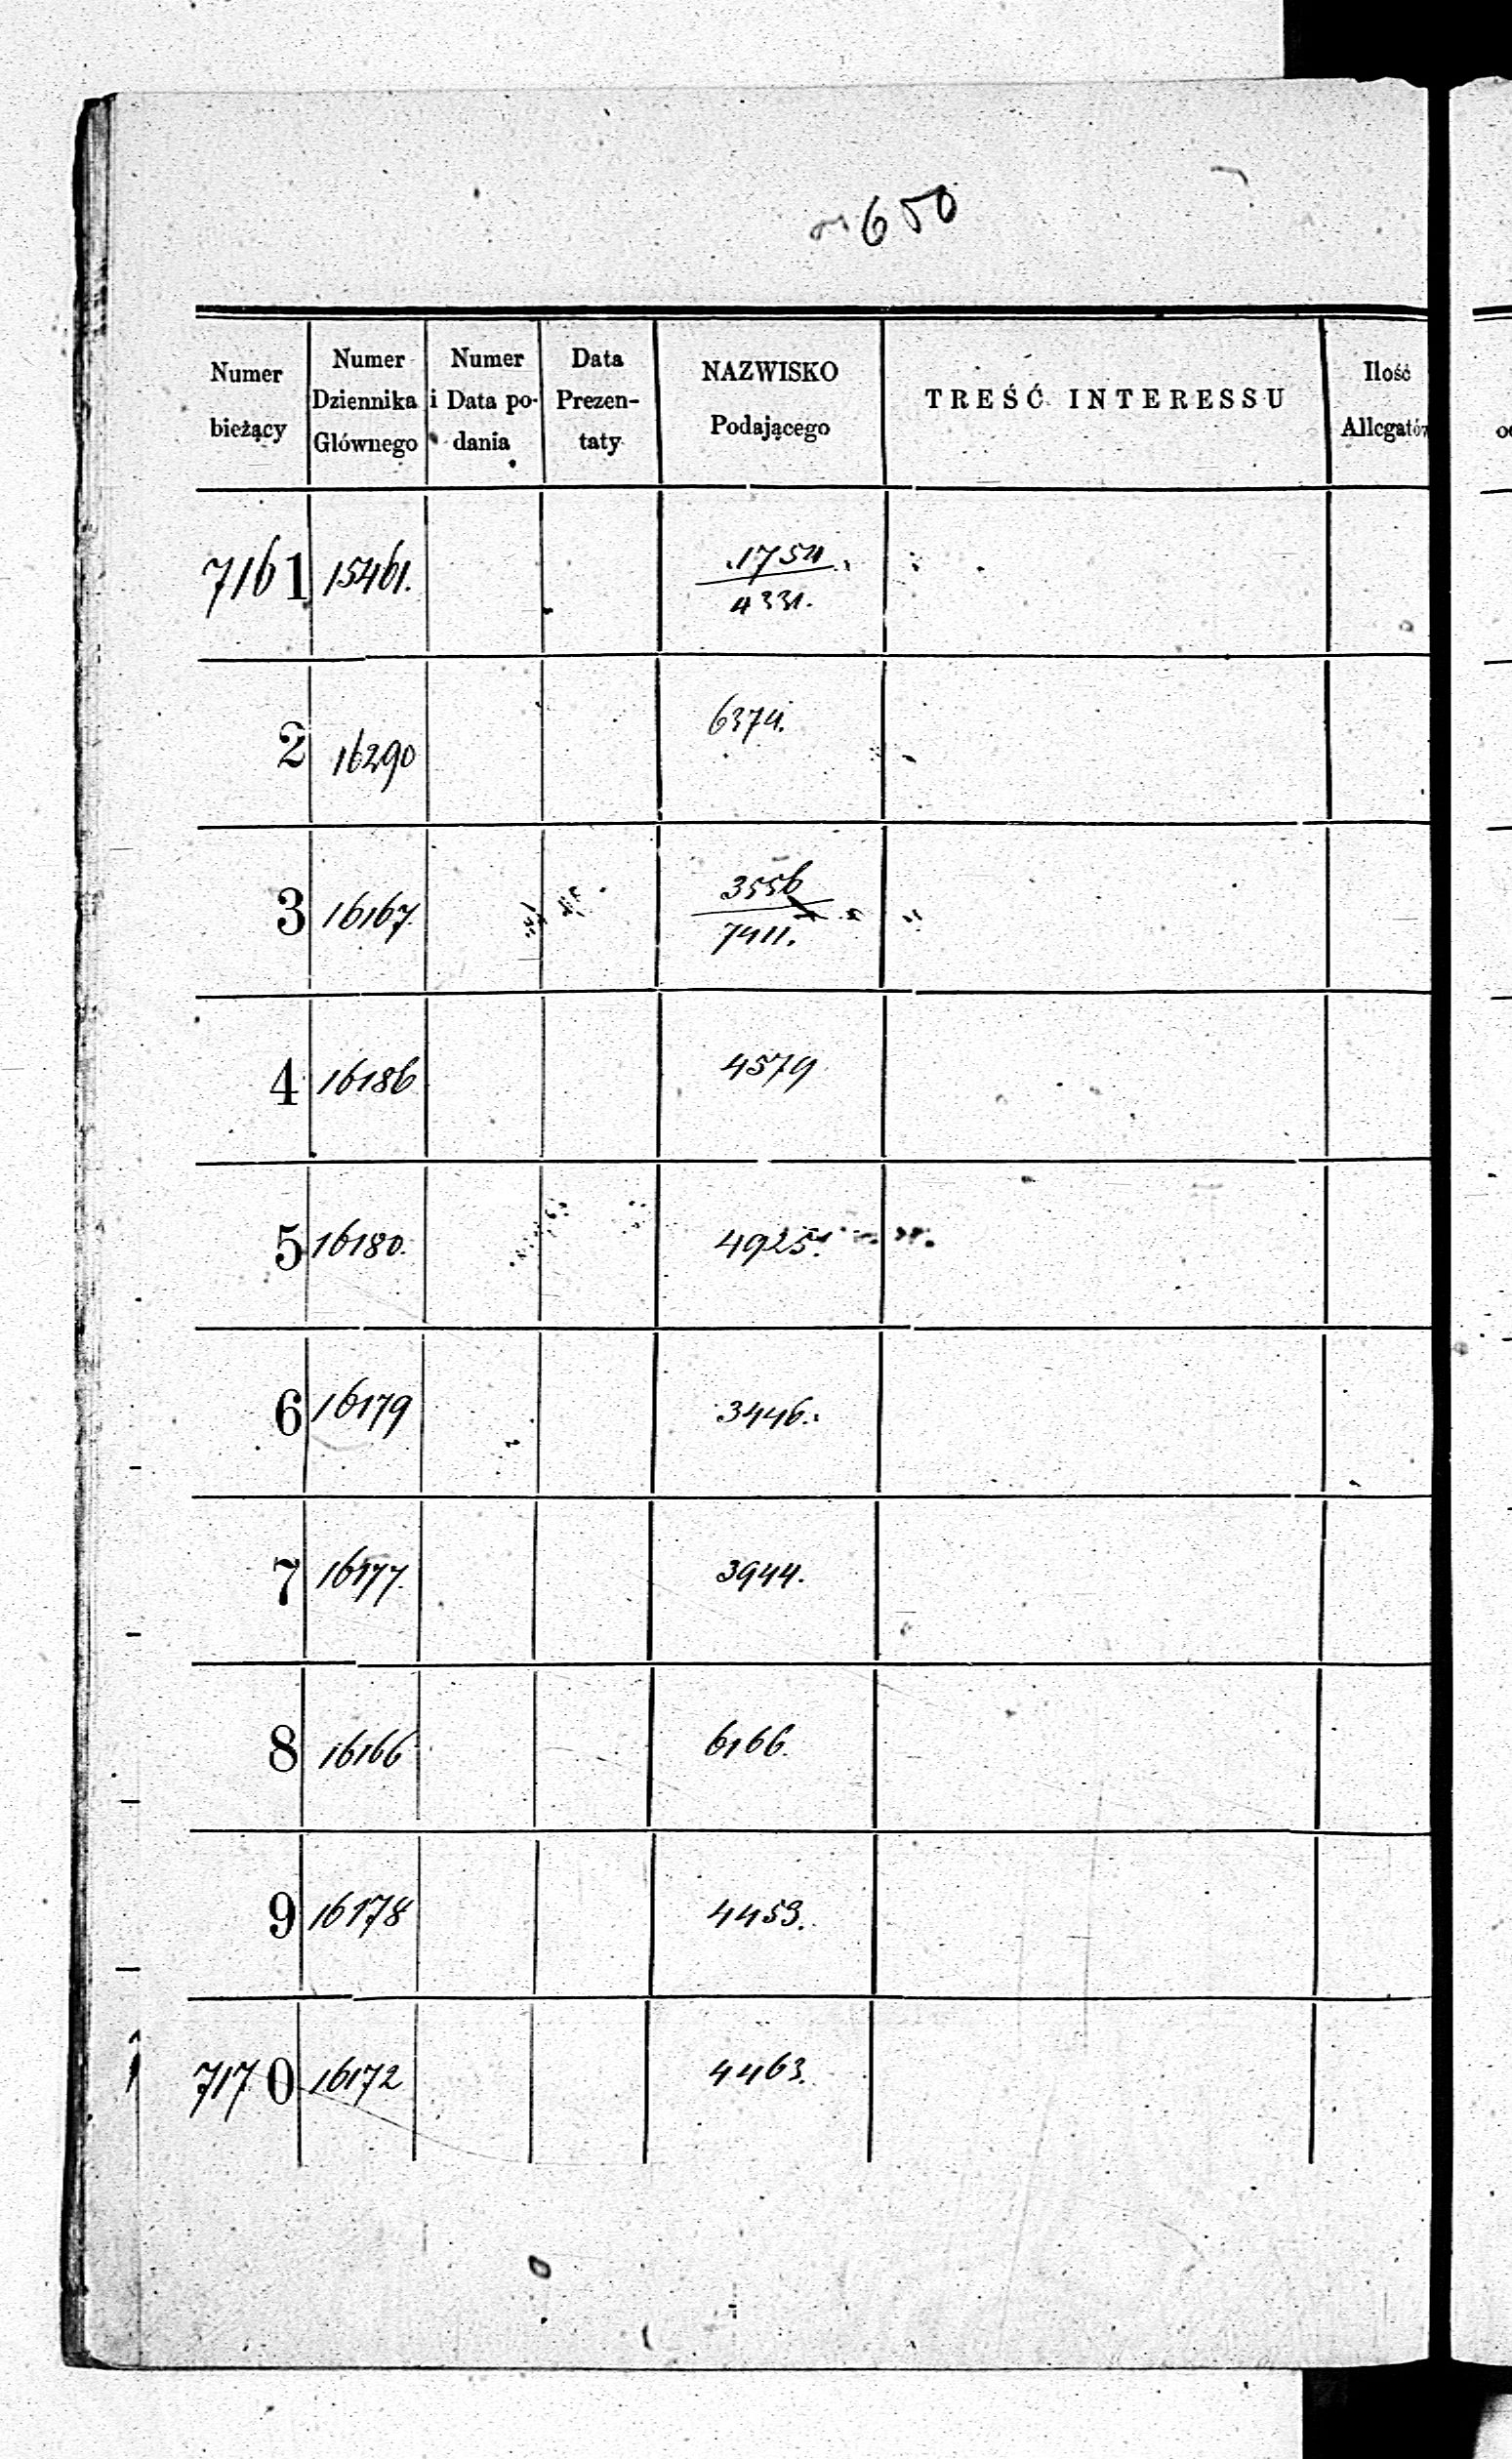 650
Numer bieżący | Numer Dziennika Głównego | Numer i Data po- dania | Data Prezen- taty | NAZWISKO Podającego | TREŚĆ INTERESSU | Ilość Allegatów
7161 | 15461. | 1754 / 4331.
2 | 16290 | 6374.
3 | 16167 | 3556 / 7411.
4 | 16186 | 4579
5 | 16180. | 4925.
6 | 16179 | 3446.
7 | 16177. | 3944.
8 | 16166 | 6166.
9 | 16178 | 4453.
7170 | 16172 | 4463.